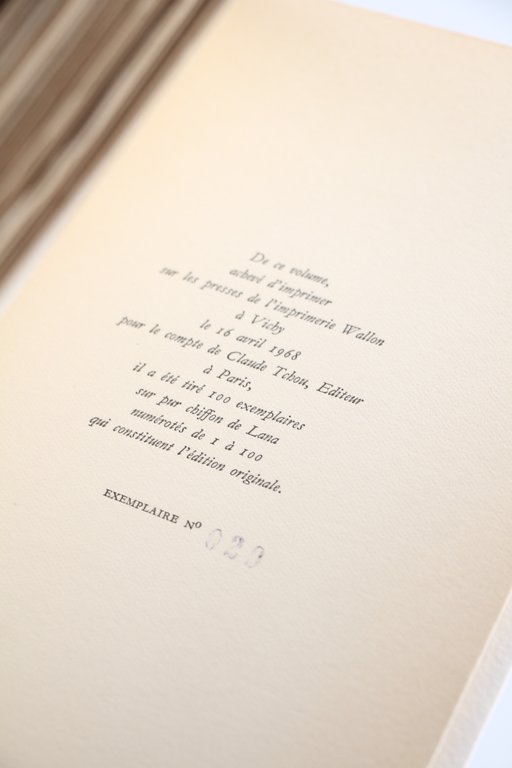 De ce volume,
achevé d'imprimer
sur les presses de l'imprimerie Wallon
à Vichy
le 16 avril 1968
pour le compte de Claude Tchou, Editeur
à Paris,
il a été tiré 100 exemplaires
sur pur chiffon de Lana
numérotés de 1 à 100
qui constituent l'édition originale.
EXEMPLAIRE Nº